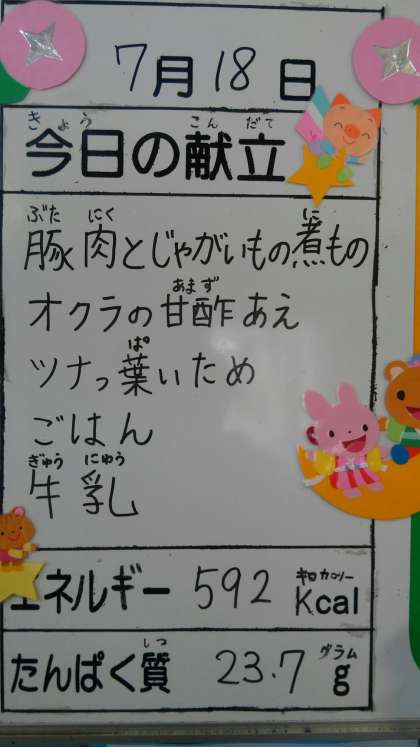 7月18日
きょう こんだて
今日の献立
ぶた にく に
豚肉とじゃがいもの煮もの
あまず
オクラの甘酢あえ
ぱ
ツナっ葉いため
ごはん
ぎゅう にゅう
牛乳
キロカロリー
エネルギー 592 Kcal
しつ グラム
たんぱく質 23.7 g